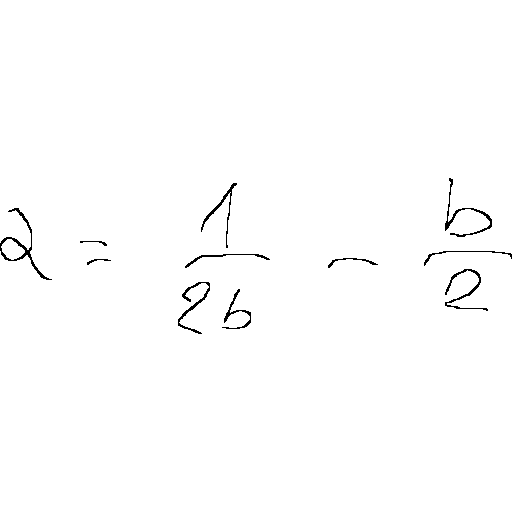 2 = \frac{1}{2b} - \frac{b}{2}